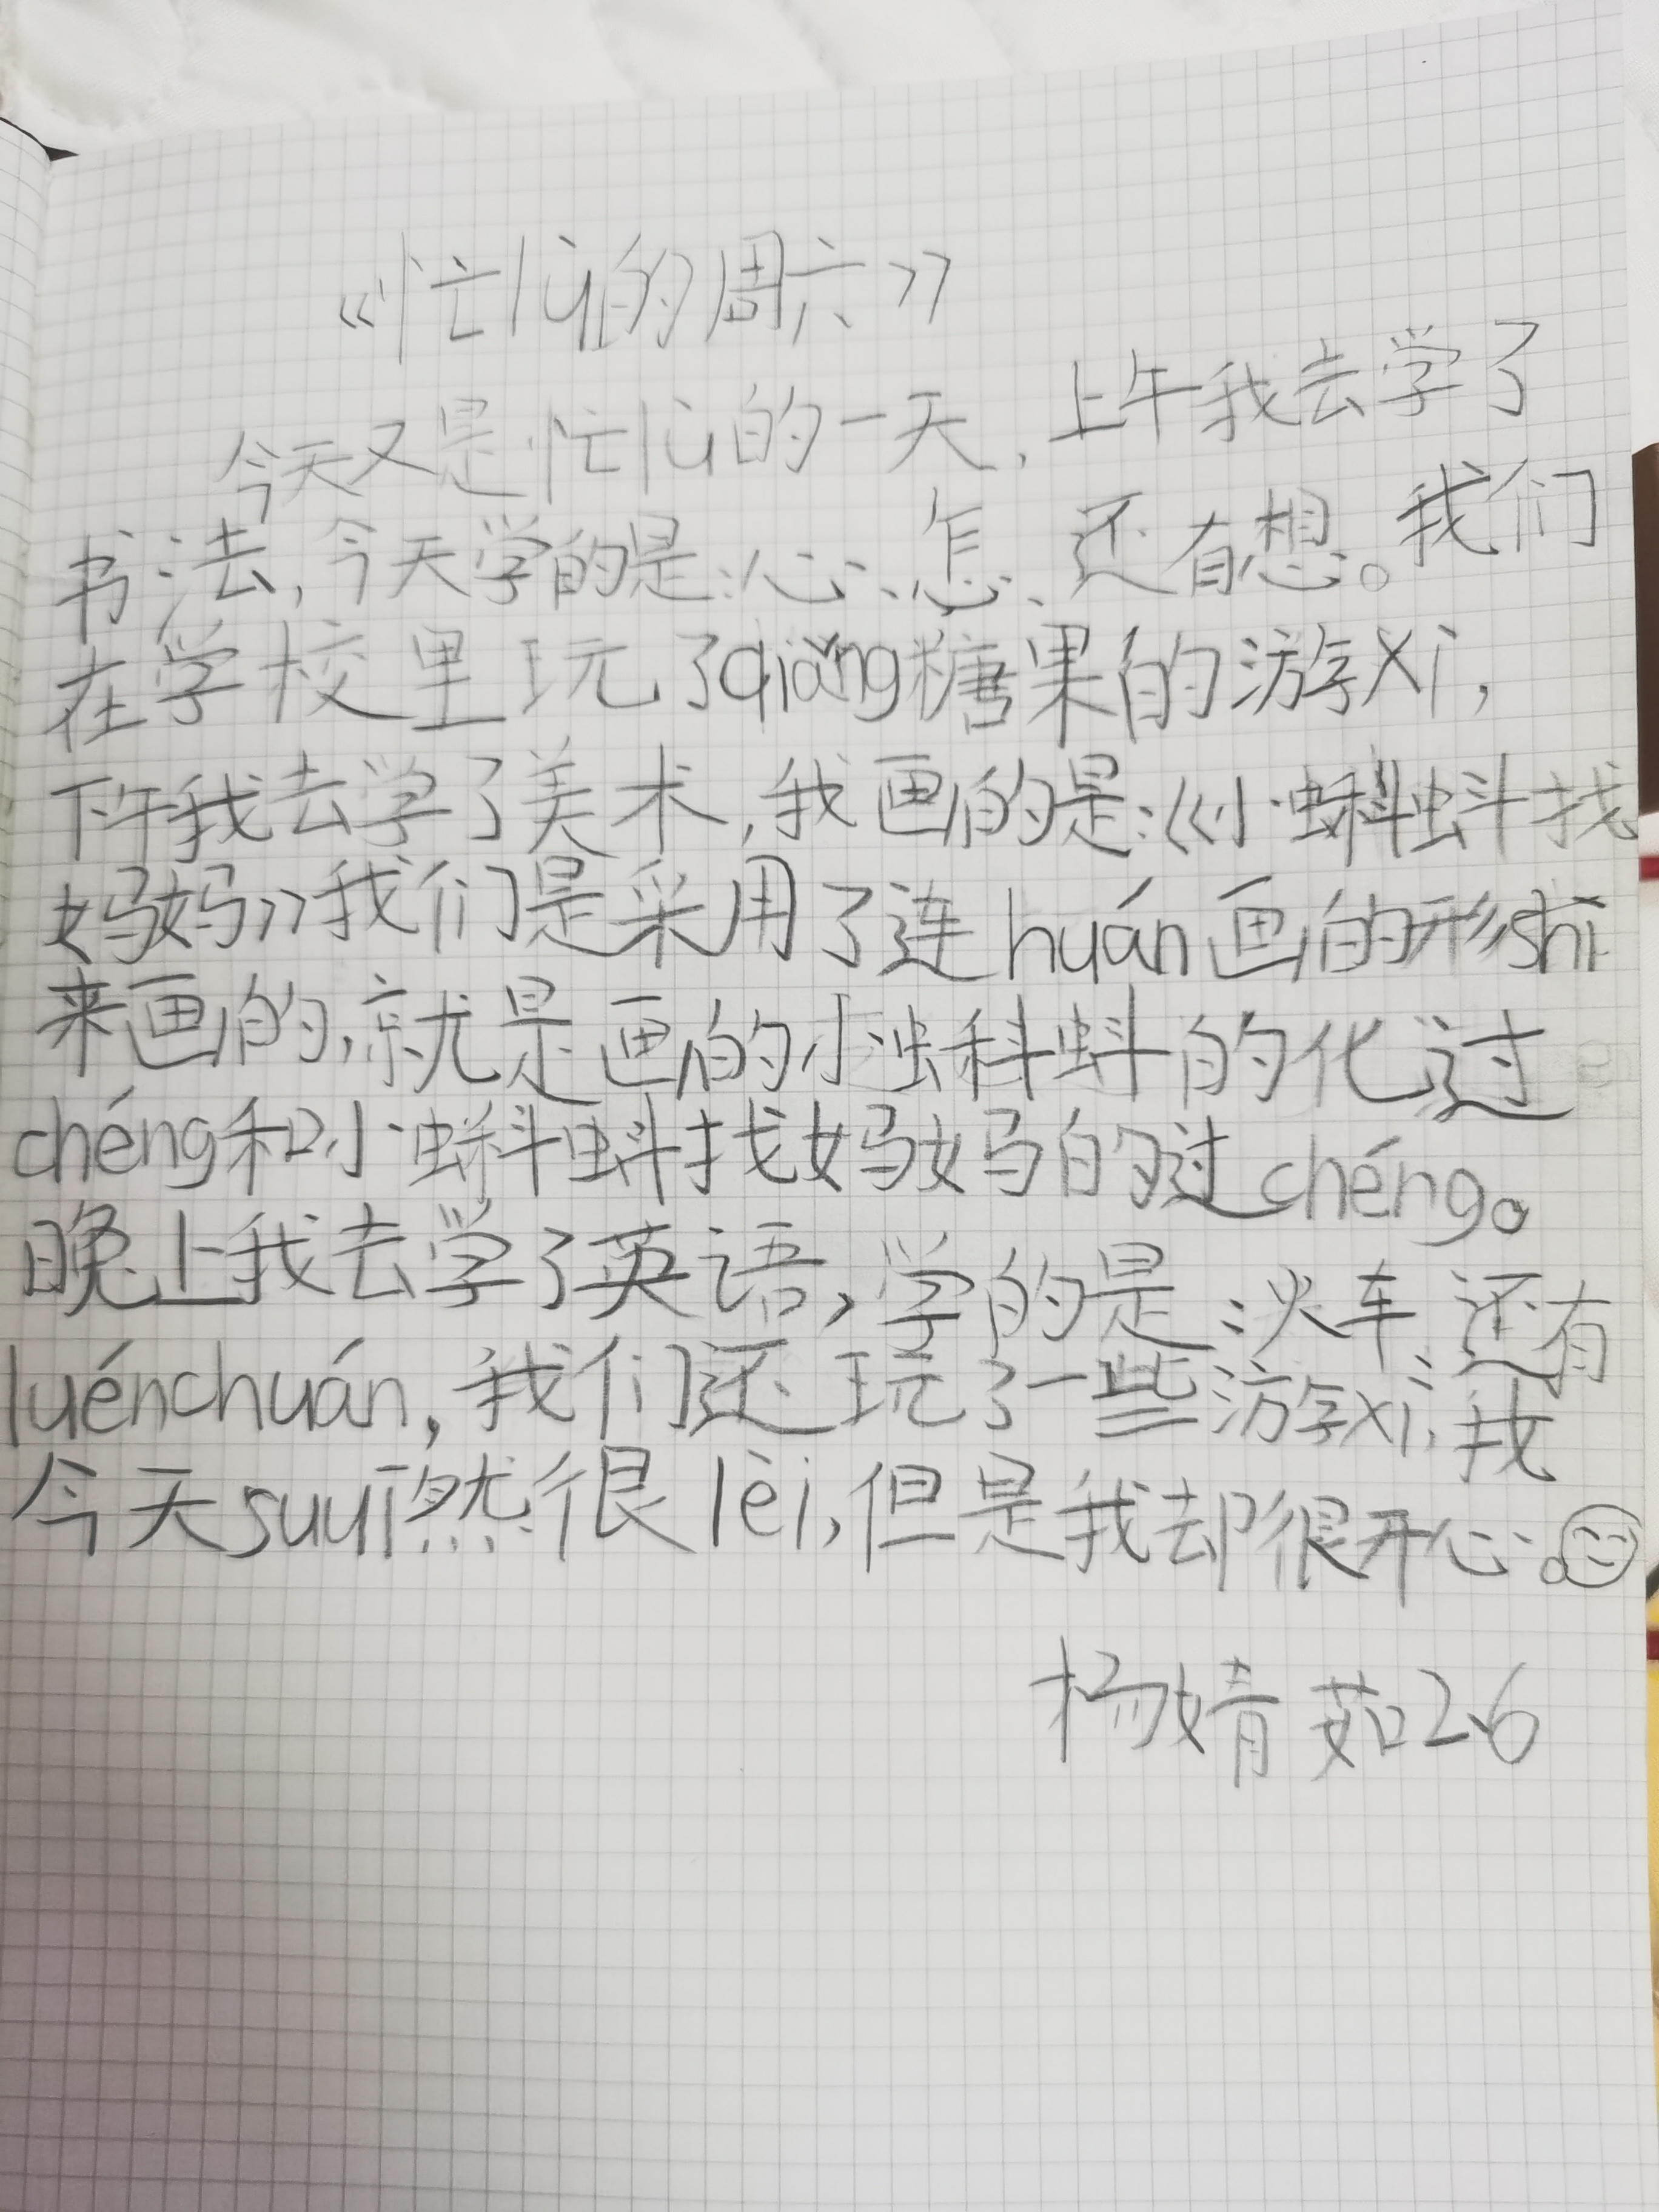 《忙lù的周六》
今天又是忙lù的一天,上午我去学了
书法,今天学的是:心、怎、还有想。我们
在学校里玩了qiǎng糖果的游xì,
下午我去学了美术,我画的是:《小蝌蚪找
妈妈》我们是采用了连huán画的形shì
来画的,就是画的小蝌蚪的化过
chéng和小蝌蚪找妈妈的过chéng。
晚上我去学了英语,学的是:火车、还有
luénchuán,我们还玩了一些游xì,我
今天suuī然很lèi,但是我却很开心。
杨婧茹2.6